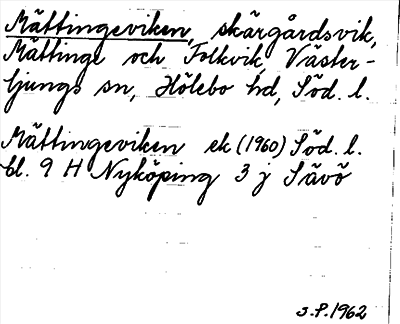 Mättingeviken, skärgårdsvik,
Mättinge och Folkvik Väster-
ljungs sn, Hölebo hd, Söd. l.
Mättingeviken ek (1960) Söd. l.
bl. 9 H Nyköping 3 j Sävö
S.P. 1962